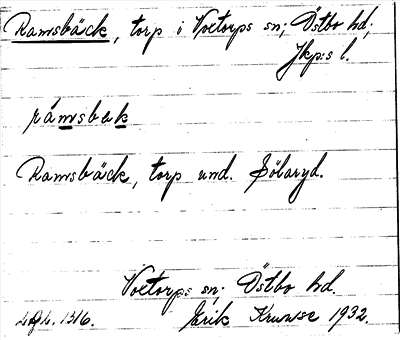 Ramsbäck, torp i Voxtorps sn; Östbo hd;
Jkp:s l.
råmsbäk
Ramsbäck, torp und. Sölaryd.
Voxtorps sn; Östbo hd.
1316. Erik 1932.